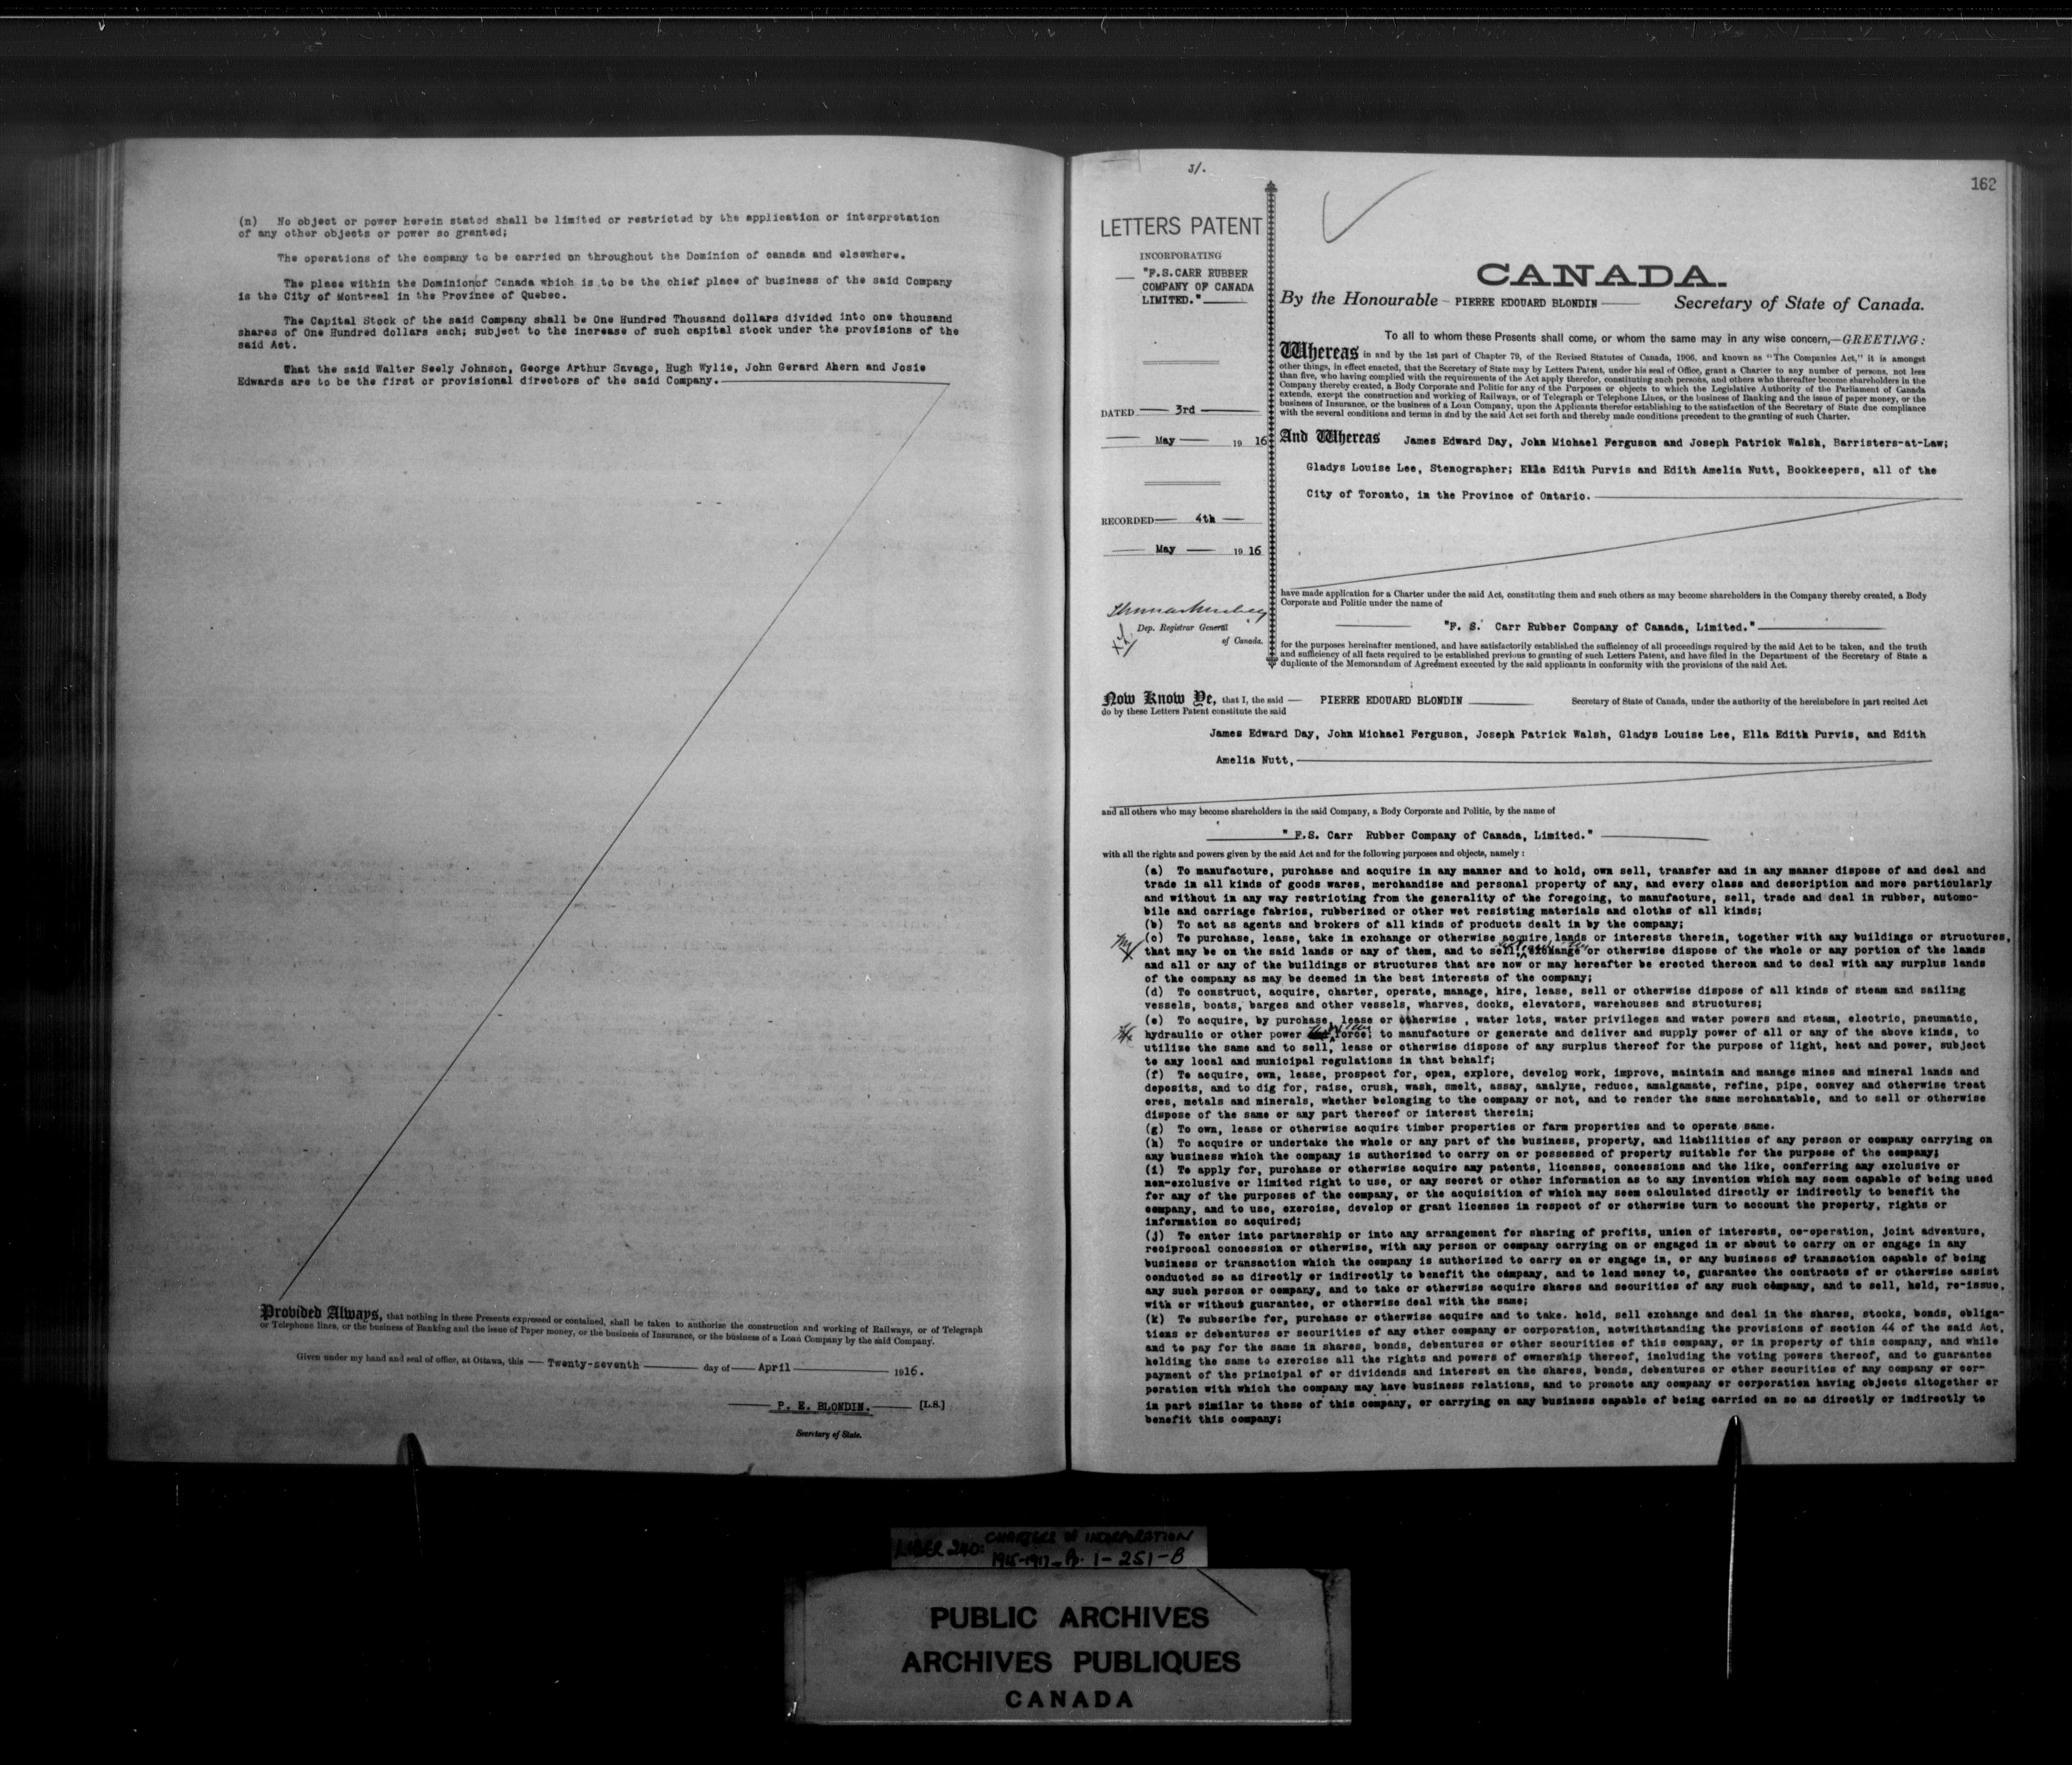 (n) No object or power herein stated shall be limited or restricted by the application or interpretation
of any other objects or power so granted;
The operations of the company to be carried on throughout the Dominion of canada and elsewhere.
The place within the Dominion of Canada which is to be the chief place of business of the said Company
is the City of Montreal in the Province of Quebec.
The Capital Stock of the said Company shall be One Hundred Thousand dollars divided into one thousand
shares of One Hundred dollars each; subject to the increase of such capital stock under the provisions of the
said Act.
That the said Walter Seely Johnson, George Arthur Savage, Hugh Wylie, John Gerard Ahern and Josie
Edwards are to be the first or provisional directors of the said Company.
Provided Always, that nothing in these Presents expressed or contained, shall be taken to authorize the construction and working of Railways, or of Telegraph
or Telephone lines, or the business of Banking and the issue of Paper money, or the business of Insurance, or the business of a Loan Company by the said Company.
Given under my hand and seal of office, at Ottawa, this — Twenty-seventh — day of — April — 1916.
P. E. BLONDIN. [L.S.]
Secretary of State.
31.
162
LETTERS PATENT
INCORPORATING
"F.S.CARR RUBBER
COMPANY OF CANADA
LIMITED."
DATED — 3rd —
— May — 19 16
RECORDED — 4th —
— May — 19 16
Dep. Registrar General
of Canada.
CANADA.
By the Honourable – PIERRE EDOUARD BLONDIN — Secretary of State of Canada.
To all to whom these Presents shall come, or whom the same may in any wise concern,—GREETING:
Whereas in and by the 1st part of Chapter 79, of the Revised Statutes of Canada, 1906, and known as "The Companies Act," it is amongst
other things, in effect enacted, that the Secretary of State may by Letters Patent, under his seal of Office, grant a Charter to any number of persons, not less
than five, who having complied with the requirements of the Act apply therefor, constituting such persons, and others who thereafter become shareholders in the
Company thereby created, a Body Corporate and Politic for any of the Purposes or objects to which the Legislative Authority of the Parliament of Canada
extends, except the construction and working of Railways, or of Telegraph or Telephone Lines, or the business of Banking and the issue of paper money, or the
business of Insurance, or the business of a Loan Company, upon the Applicants therefor establishing to the satisfaction of the Secretary of State due compliance
with the several conditions and terms in and by the said Act set forth and thereby made conditions precedent to the granting of such Charter.
And Whereas James Edward Day, John Michael Ferguson and Joseph Patrick Walsh, Barristers-at-Law;
Gladys Louise Lee, Stenographer; Ella Edith Purvis and Edith Amelia Nutt, Bookkeepers, all of the
City of Toronto, in the Province of Ontario.
have made application for a Charter under the said Act, constituting them and such others as may become shareholders in the Company thereby created, a Body
Corporate and Politic under the name of
"F. S. Carr Rubber Company of Canada, Limited."
for the purposes hereinafter mentioned, and have satisfactorily established the sufficiency of all proceedings required by the said Act to be taken, and the truth
and sufficiency of all facts required to be established previous to granting of such Letters Patent, and have filed in the Department of the Secretary of State a
duplicate of the Memorandum of Agreement executed by the said applicants in conformity with the provisions of the said Act.
Now Know Ye, that I, the said — PIERRE EDOUARD BLONDIN — Secretary of State of Canada, under the authority of the hereinbefore in part recited Act
do by these Letters Patent constitute the said
James Edward Day, John Michael Ferguson, Joseph Patrick Walsh, Gladys Louise Lee, Ella Edith Purvis, and Edith
Amelia Nutt,
and all others who may become shareholders in the said Company, a Body Corporate and Politic, by the name of
" F.S. Carr Rubber Company of Canada, Limited."
with all the rights and powers given by the said Act and for the following purposes and objects, namely :
(a) To manufacture, purchase and acquire in any manner and to hold, own sell, transfer and in any manner dispose of and deal and
trade in all kinds of goods wares, merchandise and personal property of any, and every class and description and more particularly
and without in any way restricting from the generality of the foregoing, to manufacture, sell, trade and deal in rubber, automo-
bile and carriage fabrics, rubberized or other wet resisting materials and cloths of all kinds;
(b) To act as agents and brokers of all kinds of products dealt in by the company;
(c) To purchase, lease, take in exchange or otherwise acquire lands or interests therein, together with any buildings or structures,
that may be on the said lands or any of them, and to sell, exchange or otherwise dispose of the whole or any portion of the lands
and all or any of the buildings or structures that are now or may hereafter be erected thereon and to deal with any surplus lands
of the company as may be deemed in the best interests of the company;
(d) To construct, acquire, charter, operate, manage, hire, lease, sell or otherwise dispose of all kinds of steam and sailing
vessels, boats, barges and other vessels, wharves, docks, elevators, warehouses and structures;
(e) To acquire, by purchase, lease or otherwise , water lots, water privileges and water powers and steam, electric, pneumatic,
hydraulic or other power force; to manufacture or generate and deliver and supply power of all or any of the above kinds, to
utilize the same and to sell, lease or otherwise dispose of any surplus thereof for the purpose of light, heat and power, subject
to any local and municipal regulations in that behalf;
(f) To acquire, own, lease, prospect for, open, explore, develop work, improve, maintain and manage mines and mineral lands and
deposits, and to dig for, raise, crush, wash, smelt, assay, analyze, reduce, amalgamate, refine, pipe, convey and otherwise treat
ores, metals and minerals, whether belonging to the company or not, and to render the same merchantable, and to sell or otherwise
dispose of the same or any part thereof or interest therein;
(g) To own, lease or otherwise acquire timber properties or farm properties and to operate same.
(h) To acquire or undertake the whole or any part of the business, property, and liabilities of any person or company carrying on
any business which the company is authorized to carry on or possessed of property suitable for the purpose of the company;
(i) To apply for, purchase or otherwise acquire any patents, licenses, concessions and the like, conferring any exclusive or
non-exclusive or limited right to use, or any secret or other information as to any invention which may seem capable of being used
for any of the purposes of the company, or the acquisition of which may seem calculated directly or indirectly to benefit the
company, and to use, exercise, develop or grant licenses in respect of or otherwise turn to account the property, rights or
information so acquired;
(j) To enter into partnership or into any arrangement for sharing of profits, union of interests, co-operation, joint adventure,
reciprocal concession or otherwise, with any person or company carrying on or engaged in or about to carry on or engage in any
business or transaction which the company is authorized to carry on or engage in, or any business of transaction capable of being
conducted so as directly or indirectly to benefit the company, and to lend money to, guarantee the contracts of or otherwise assist
any such person or company, and to take or otherwise acquire shares and securities of any such company, and to sell, hold, re-issue,
with or without guarantee, or otherwise deal with the same;
(k) To subscribe for, purchase or otherwise acquire and to take. hold, sell exchange and deal in the shares, stocks, bonds, obliga-
tions or debentures or securities of any other company or corporation, notwithstanding the provisions of section 44 of the said Act,
and to pay for the same in shares, bonds, debentures or other securities of this company, or in property of this company, and while
holding the same to exercise all the rights and powers of ownership thereof, including the voting powers thereof, and to guarantee
payment of the principal of or dividends and interest on the shares, bonds, debentures or other securities of any company or cor-
poration with which the company may have business relations, and to promote any company or corporation having objects altogether or
in part similar to those of this company, or carrying on any business capable of being carried on so as directly or indirectly to
benefit this company;
LIBER 240: CHARTERS OF INCORPORATION
1915-1917 - Pp. 1-251-B
PUBLIC ARCHIVES
ARCHIVES PUBLIQUES
CANADA